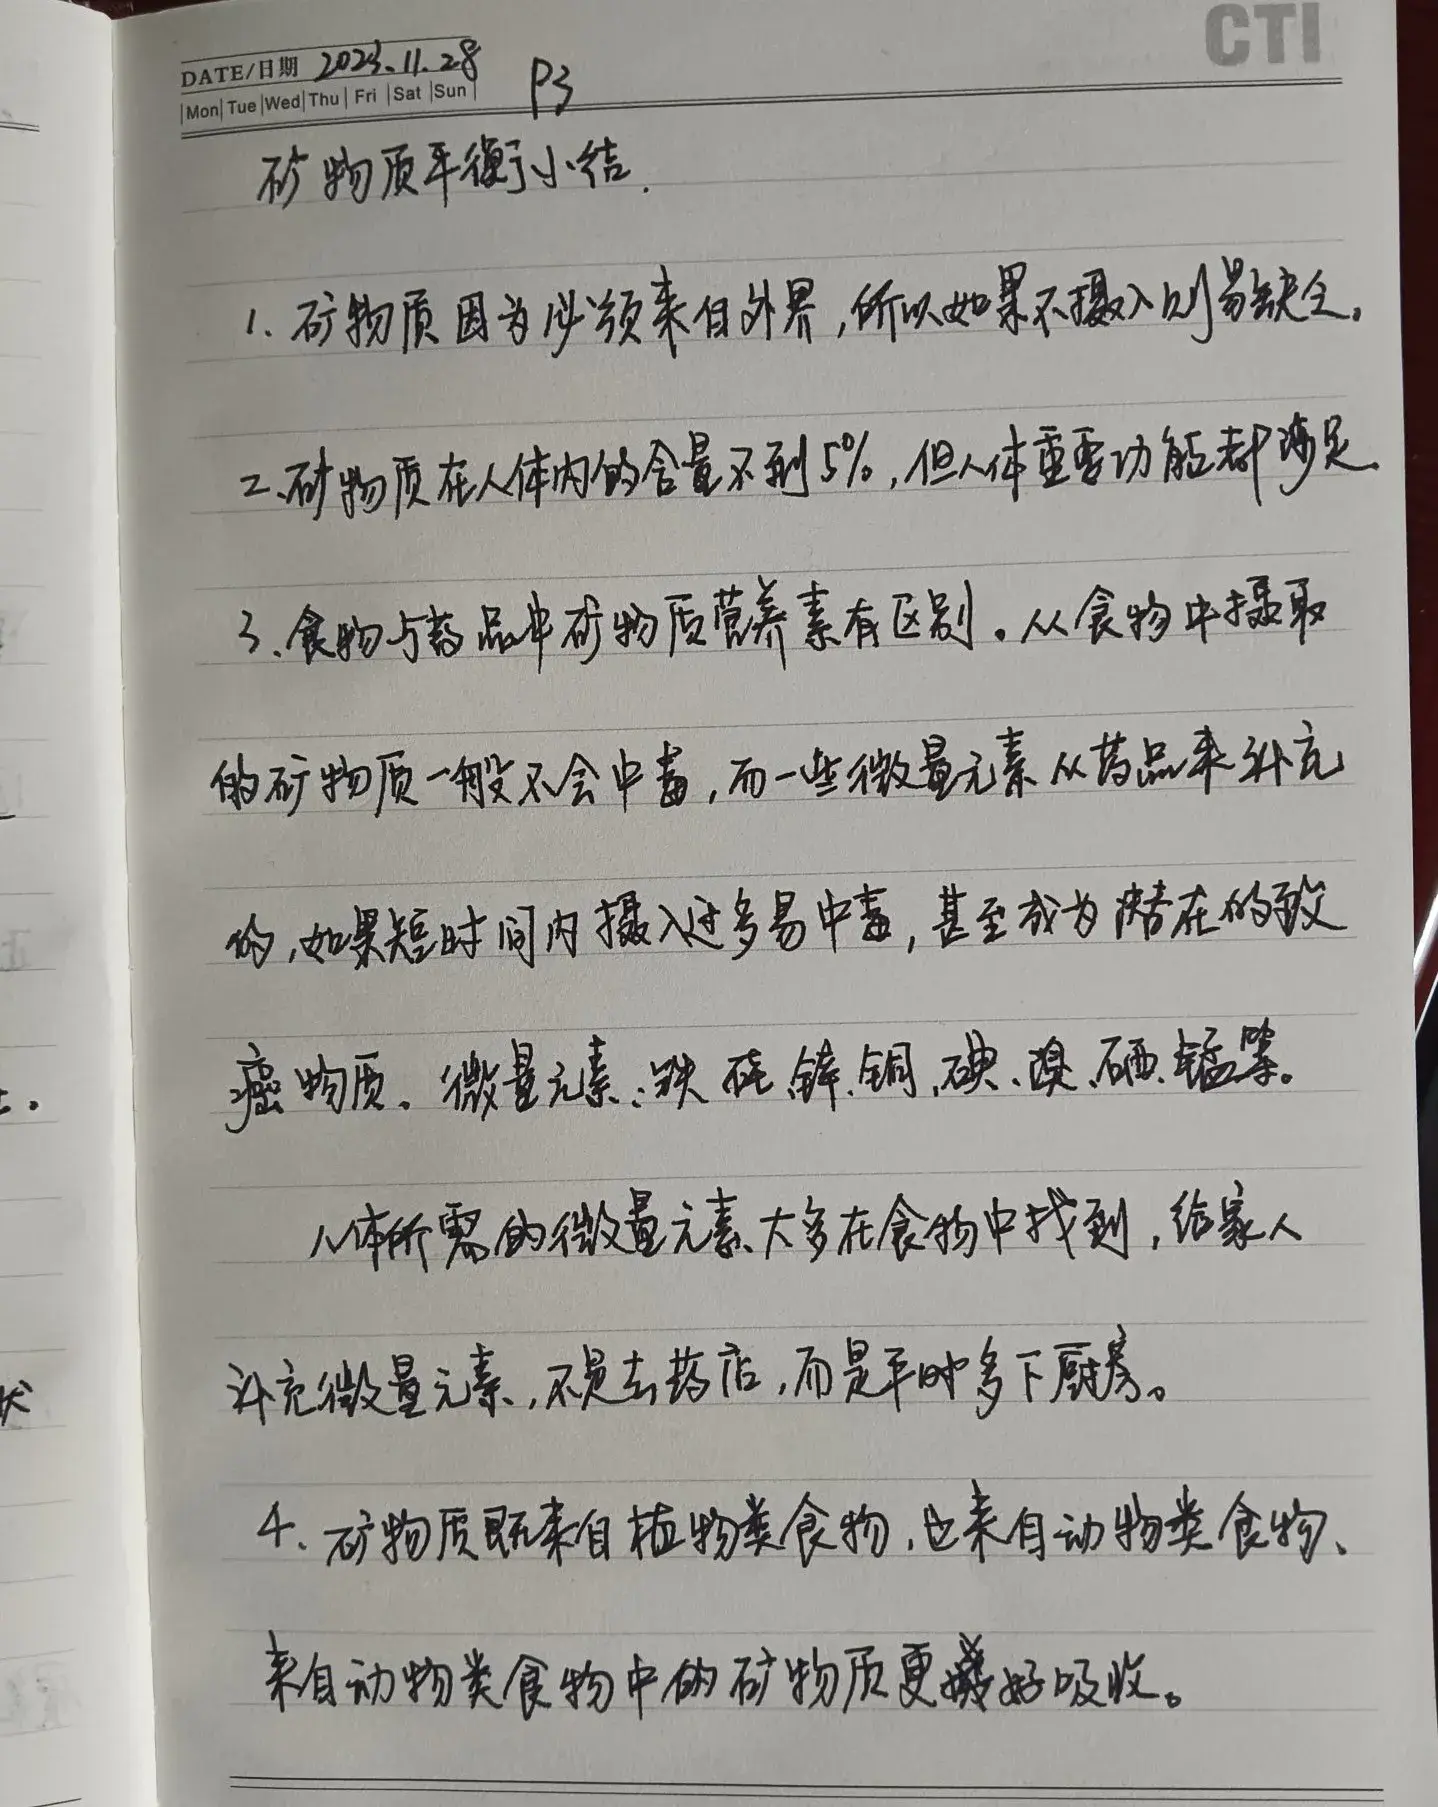 CTI
DATE/日期 2023.11.28 P3
Mon Tue Wed Thu Fri Sat Sun
矿物质平衡小结.
1. 矿物质因为必须来自外界,所以如果不摄入则易缺乏。
2.矿物质在人体内的含量不到5%,但人体重要功能都涉足.
3.食物与药品中矿物质营养素有区别。从食物中摄取
的矿物质一般不会中毒,而一些微量元素从药品来补充
的,如果短时间内摄入过多易中毒,甚至成为潜在的致
癌物质。微量元素:铁、锌、铜、碘、溴、硒、锰等。
人体所需的微量元素大多在食物中找到,给家人
补充微量元素,不是去药店,而是平时多下厨房。
4.矿物质既来自植物类食物,也来自动物类食物、
来自动物类食物中的矿物质更好吸收。